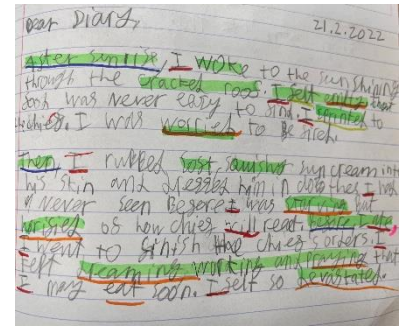 Dear Diary, 21.2.2022
After sunrise, I woke to the sun shining
through the cracked roof. I felt that
was never easy to find. I to
chief. I was worried to be sick.
Then, I rubbed suncream into
his skin and dressed him in clothes I had
never seen before. I was starving but
horrified of how chief will react.
I went to finish the chief's orders. I
kept dreaming, working and praying that
I may eat soon. I felt so devastated.